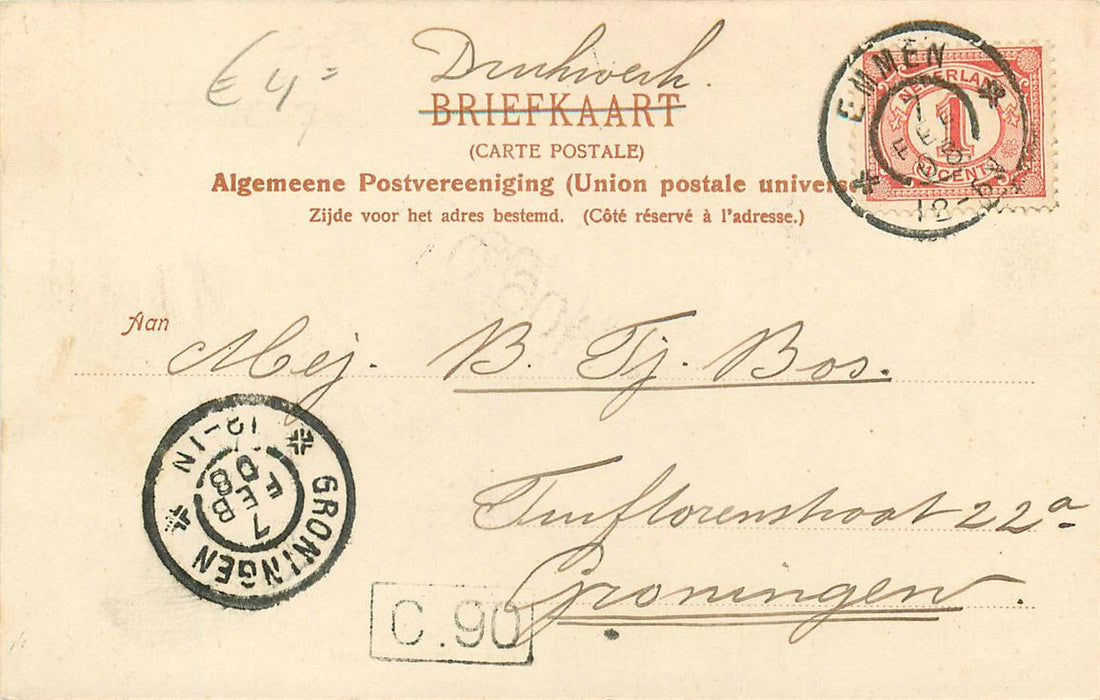 € 4=
Drukwerk.
BRIEFKAART
(CARTE POSTALE)
Algemeene Postvereeniging (Union postale univers
Zijde voor het adres bestemd. (Côté réservé à l'adresse.)
EMMEN
NEDERLAND
1
CENT
Aan
Mej. B. Tj. Bos.
Turftorenstraat 22a
Groningen.
GRONINGEN
7
FEB
08
12-1N
C.90